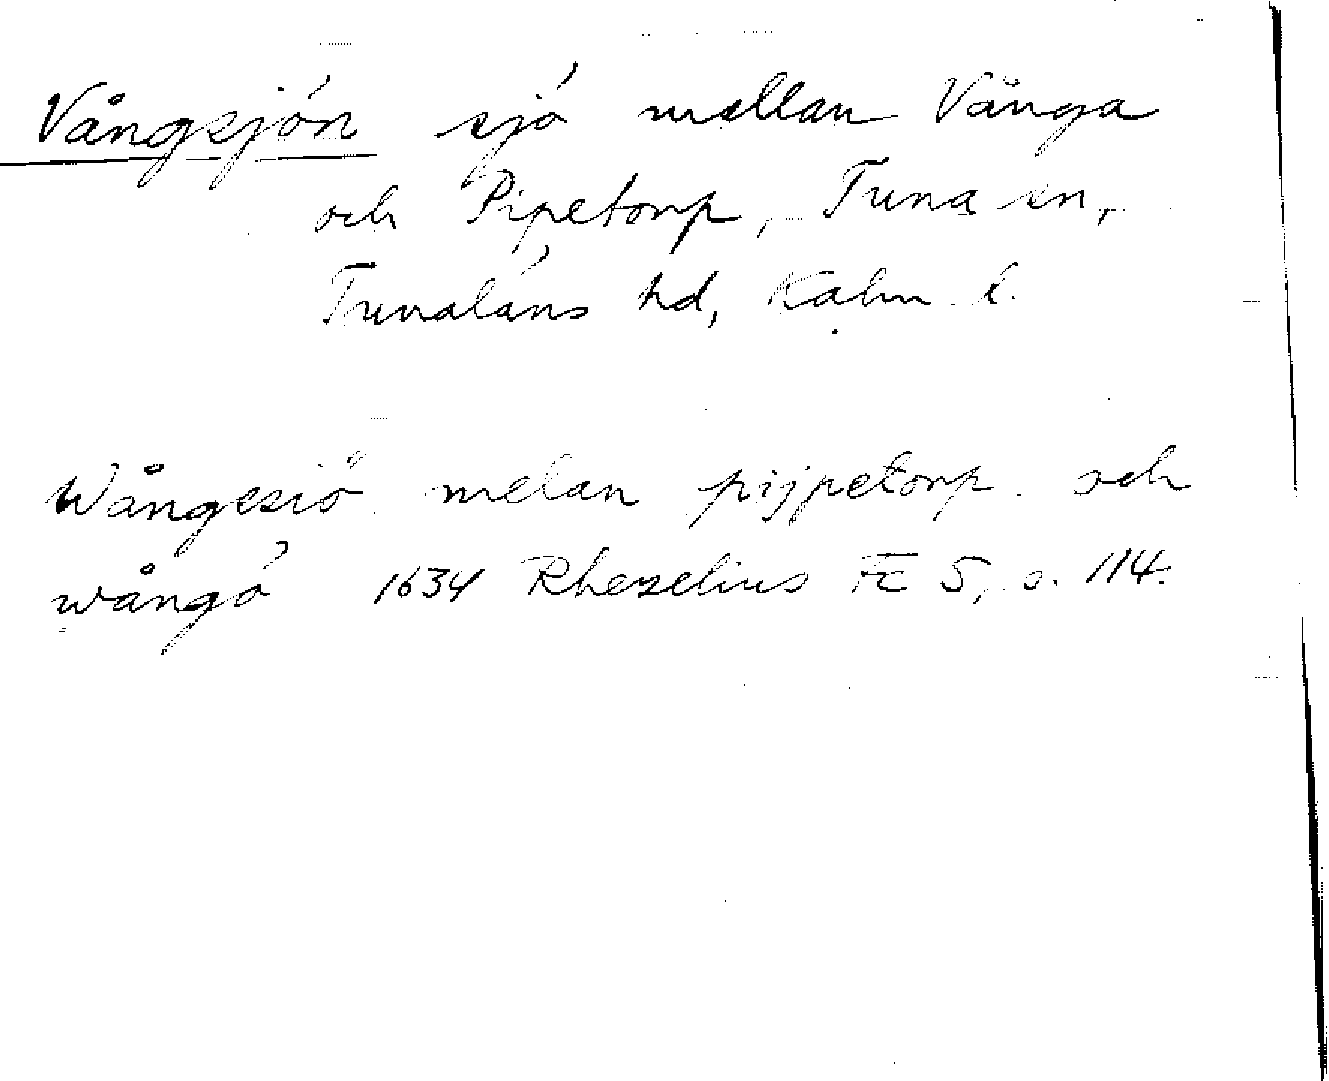 Vångsjön sjö mellan Vånga
och Pipetorp, Tuna sn,
Tunaläns hd, Kalm. l.
Wångesiö melan pijpetorp och
wångö 1634 Rhezelius Fc 5, s. 114.